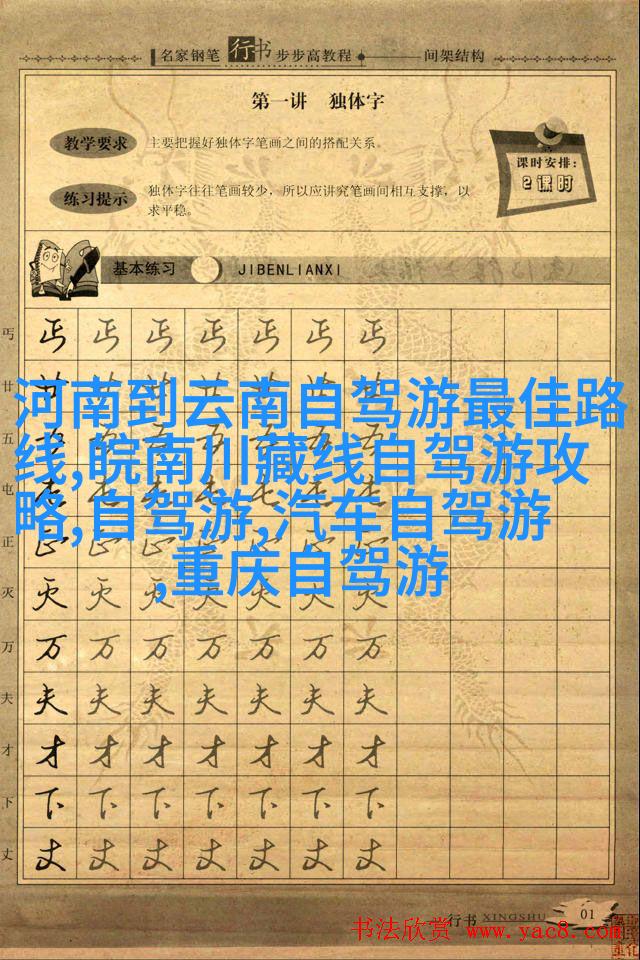 名家钢笔 行书 步步高教程 间架结构
第一讲 独体字
教学要求 主要把握好独体字笔画之间的搭配关系。
课时安排:
2课时
练习提示 独体字往往笔画较少，所以应讲究笔画间相互支撑，以
求平稳。
基本练习 JIBENLIANXI
丐 丐 丐 丐 丐 丐 丐 丐
廿 廿 廿 廿 廿 廿 廿 廿
河南到云南自驾游最佳路
线,皖南川藏线自驾游攻
略,自驾游,汽车自驾游
,重庆自驾游
五 五 五 五 五 五 五 五
屯 屯 屯 屯 屯 屯 屯 屯
正 正 正 正 正 正 正 正
灭 灭 灭 灭 灭 灭 灭 灭
万 万 万 万 万 万 万 万
夫 夫 夫 夫 夫 夫 夫 夫
才 才 才 才 才 才 才 才
下 下 下 下 下 下 下 下
丈 丈 丈 丈 丈 丈 丈 丈
行书 XINGSHU 01
书法欣赏 www.yac8.com